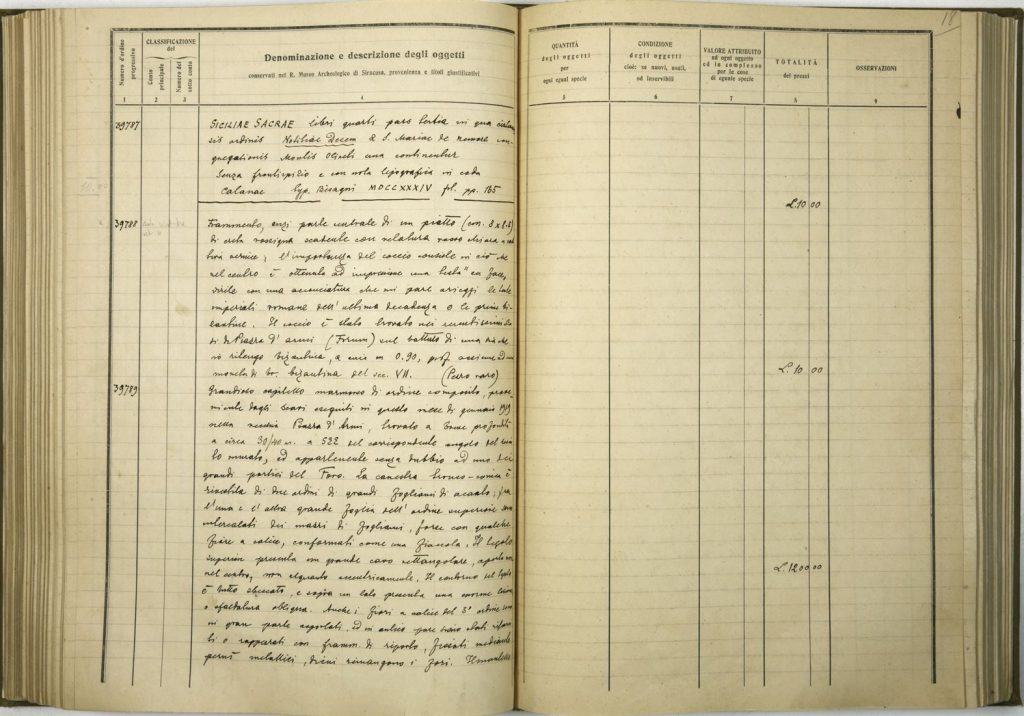 18
Numero d'ordine progressivo
CLASSIFICAZIONE del
Conto principale
Numero del sotto conto
Denominazione e descrizione degli oggetti
conservati nel R. Museo Archeologico di Siracusa, provenienza e titoli giustificativi
QUANTITÀ degli oggetti per ogni egual specie
CONDIZIONE degli oggetti cioè: se nuovi, usati, od inservibili
VALORE ATTRIBUITO ad ogni oggetto ed in complesso per le cose di eguale specie
TOTALITÀ dei prezzi
OSSERVAZIONI
1 2 3 4 5 6 7 8 9
39787 SICILIAE SACRAE libri quarti pars tertia in qua
sis ordinis Notitiae Decem a S. Mariae de nemore con
gregationis Montis Oliveti una continentur
Senza frontispizio e con nota tipografica in coda
Catanae Typ. Bisagni MDCCXXXIV fol. pp. 165
L. 10 00
39788 Frammento, anzi parte centrale di un piatto (cm. 8 x 8.5)
di creta rossigna scadente con velatura rosso chiara a
vernice; l'importanza del coccio consiste in ciò che
nel centro è ottenuta ad impressione una testa en face,
virile con una acconciatura che mi pare arieggi le teste
imperiali romane dell'ultima decadenza o le prime bi
zantine. Il coccio è stato trovato nei recentissimi
di Piazza d'armi (Forum) sul battuto di una
bizantina, a circa m 0.90, prof. assieme ad una
moneta di br. bizantina del sec. VII. (Pezzo raro)
L. 10 00
39789 Grandioso capitello marmoreo di ordine composito, prove
niente dagli scavi eseguiti in questo mese di gennaio 1919
nella vecchia Piazza d'Armi, trovato a
a circa 30/40 m. a del corrispondente angolo del
murato, ed appartenente senza dubbio ad uno dei
grandi portici del Foro. La canestra tronco-conica è
rivestita di due ordini di grandi fogliami di acanto; fra
l'una e l'altra grande foglia dell'ordine superiore sono
intercalati dei mazzi di fogliami, forse con qualche
fiore a calice, conformati come una fiaccola. Il
superiore presenta un grande cavo rettangolare, aperto non
nel centro, non alquanto eccentricamente. Il contorno del
è tutto sbeccato, e sopra un lato presenta una enorme
o sfaldatura obliqua. Anche i fiori a calice del 3° ordine sono
in gran parte asportati, ed in antico pare siano stati rifat
ti o rapparati con framm. di riporto, fissati mediante
perni metallici, di cui rimangono i fori. Il
L. 1200 00